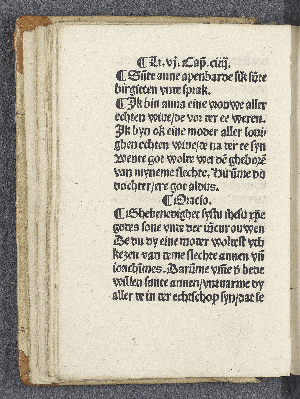 ¶ Li. vj. Cap. ciiij.
¶ Sũte anne apenbarde sik sũte
birgitten vnte sprak.
¶ Ik bin anna eine vrouwe aller
echten wiue/de vor ter ee weren.
Ik byn ok eine moder aller loui-
ghen echten wiue/te na ter ee syn
Wente got wolte wer dẽ ghebozẽ
van myneme slechte. Darũme du
dochter/ere got aldus.
¶ Oracio.
¶ Ghebenediget systu ihesu xp̃e
godes sone vnte der iũcurouwen
De du dy eine moder woltest vth
kezen van teme slechte annen vñ
ioachimes. Darũme vm̃e ð bede
willen sante annen/vntfarme dy
aller te in ter echtschop syn/dat se